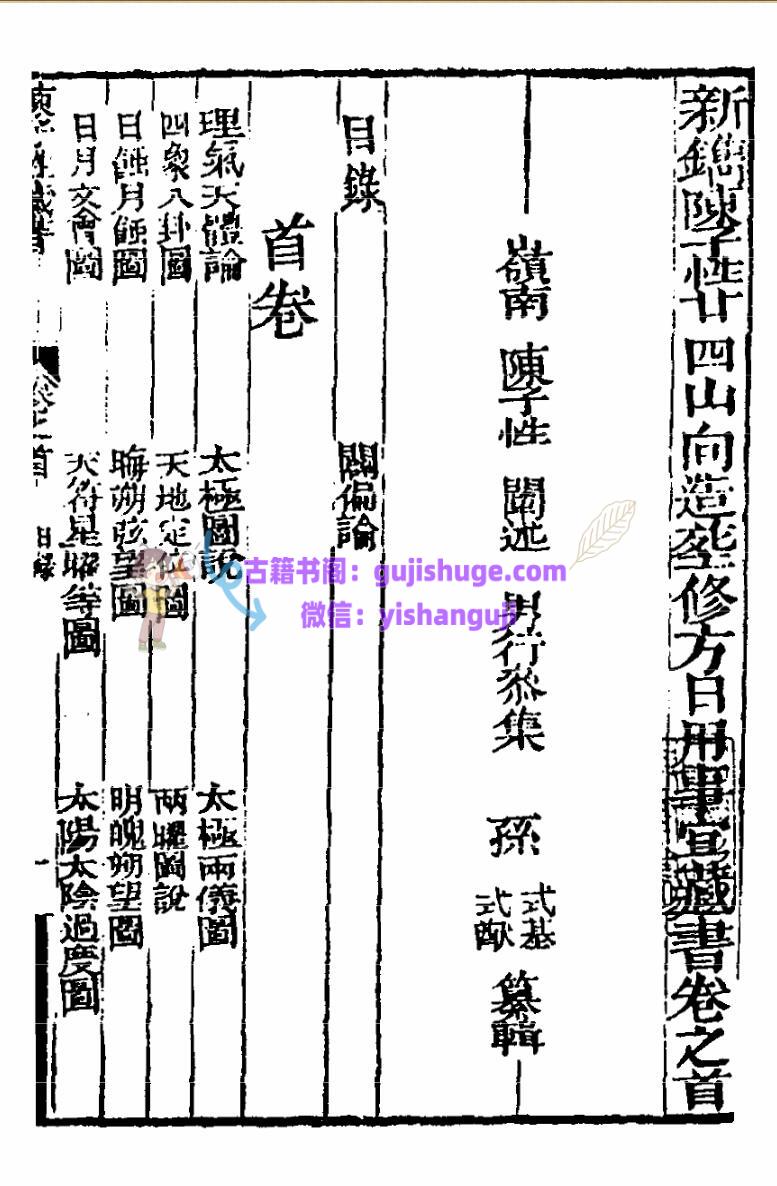 新鐫陳子性廿四山向造塟修方日用事宜藏書卷之首
嶺南 陳子性 闡述 男行泰集 孫 式基 式猷 纂輯
目錄 闢偏論
首卷
理氣天體論 太極圖說 太極兩儀圖
四象八卦圖 天地定位圖 兩曜圖說
日蝕月蝕圖 晦朔弦望圖 明魄朔望圖
日月交會圖 天符星曜等圖 太陽太陰過度圖
藏書 卷之首 目錄 一
古籍书阁：gujishuge.com
微信：yishanguji